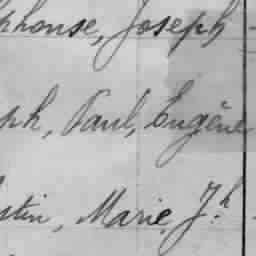 phonse, Joseph
ph, Paul, Eugène
stin, Marie, Jh